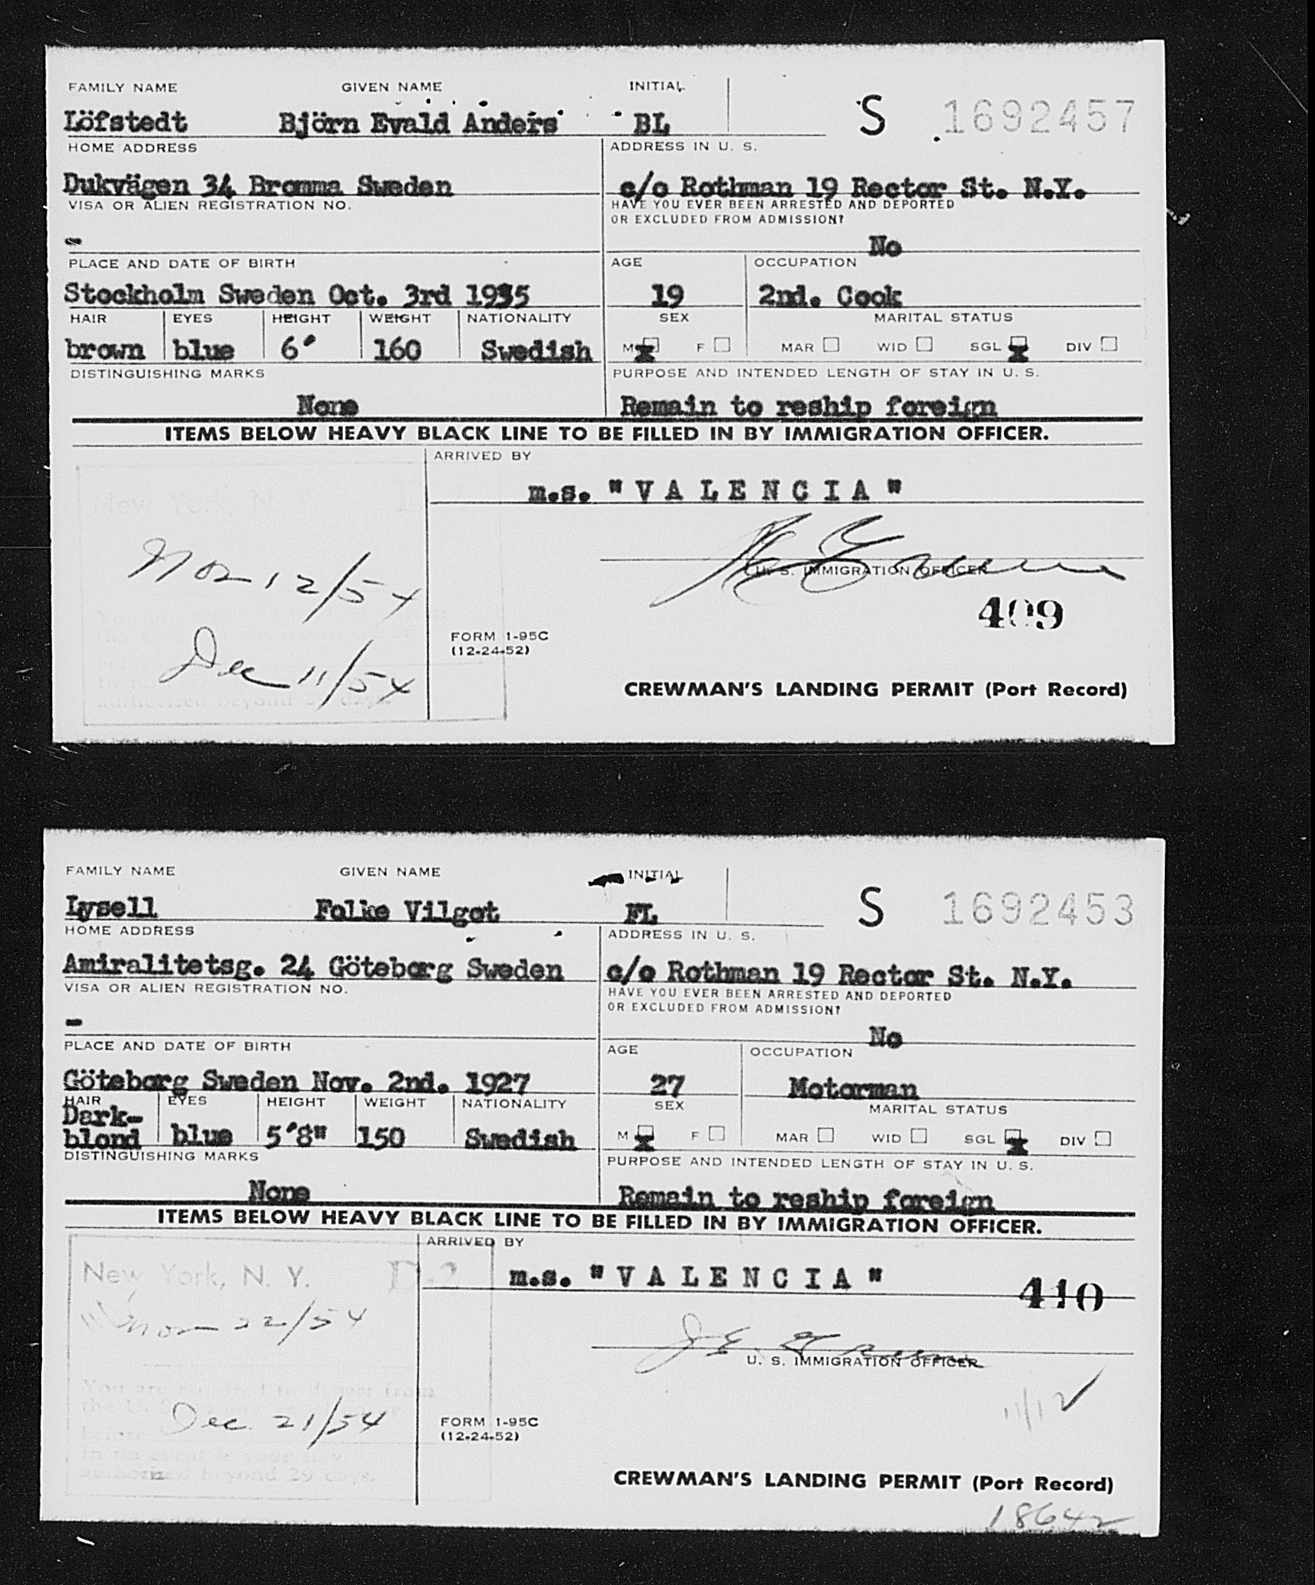 FAMILY NAME GIVEN NAME INITIAL
Löfstedt Björn Evald Anders BL S 1692457
HOME ADDRESS ADDRESS IN U. S.
Dukvägen 34 Bromma Sweden c/o Rothman 19 Rector St. N.Y.
VISA OR ALIEN REGISTRATION NO. HAVE YOU EVER BEEN ARRESTED AND DEPORTED
OR EXCLUDED FROM ADMISSION?
- No
PLACE AND DATE OF BIRTH AGE OCCUPATION
Stockholm Sweden Oct. 3rd 1935 19 2nd. Cook
HAIR EYES HEIGHT WEIGHT NATIONALITY SEX MARITAL STATUS
brown blue 6' 160 Swedish M X F MAR WID SGL X DIV
DISTINGUISHING MARKS PURPOSE AND INTENDED LENGTH OF STAY IN U. S.
None Remain to reship foreign
ITEMS BELOW HEAVY BLACK LINE TO BE FILLED IN BY IMMIGRATION OFFICER.
ARRIVED BY
m.s. "VALENCIA"
New York, N.
Nov 12/54
U. S. IMMIGRATION OFFICER
409
FORM I-95C
(12-24-52)
Dec 11/54
CREWMAN'S LANDING PERMIT (Port Record)
FAMILY NAME GIVEN NAME INITIAL
Lysell Folke Vilgot FL S 1692453
HOME ADDRESS ADDRESS IN U. S.
Amiralitetsg. 24 Göteborg Sweden c/o Rothman 19 Rector St. N.Y.
VISA OR ALIEN REGISTRATION NO. HAVE YOU EVER BEEN ARRESTED AND DEPORTED
OR EXCLUDED FROM ADMISSION?
- No
PLACE AND DATE OF BIRTH AGE OCCUPATION
Göteborg Sweden Nov. 2nd. 1927 27 Motorman
HAIR EYES HEIGHT WEIGHT NATIONALITY SEX MARITAL STATUS
Dark-
blond blue 5'8" 150 Swedish M X F MAR WID SGL X DIV
DISTINGUISHING MARKS PURPOSE AND INTENDED LENGTH OF STAY IN U. S.
None Remain to reship foreign
ITEMS BELOW HEAVY BLACK LINE TO BE FILLED IN BY IMMIGRATION OFFICER.
ARRIVED BY
New York, N. Y. D-2 m.s. "VALENCIA" 410
Nov 22/54
U. S. IMMIGRATION OFFICER
11/12
Dec. 21/54
FORM I-95C
(12-24-52)
authorized beyond 29 days.
CREWMAN'S LANDING PERMIT (Port Record)
18642